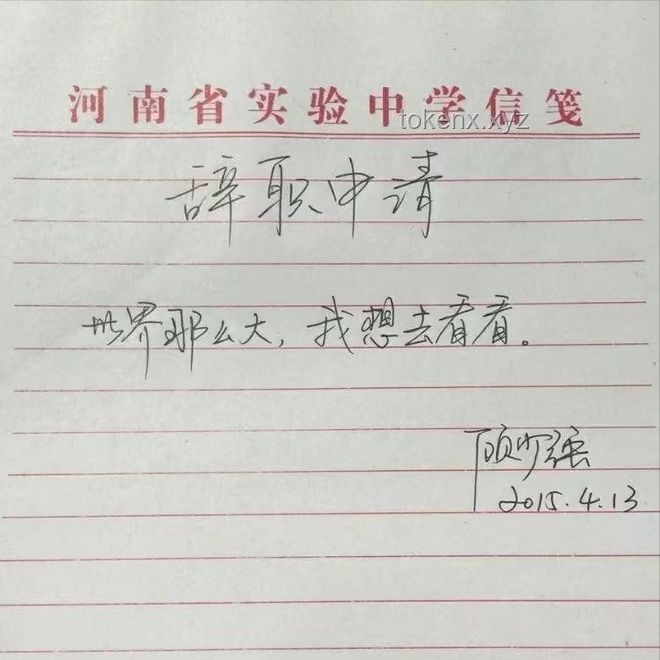 河南省实验中学信笺
tokenx.xyz
辞职申请
世界那么大，我想去看看。
顾少强
2015.4.13